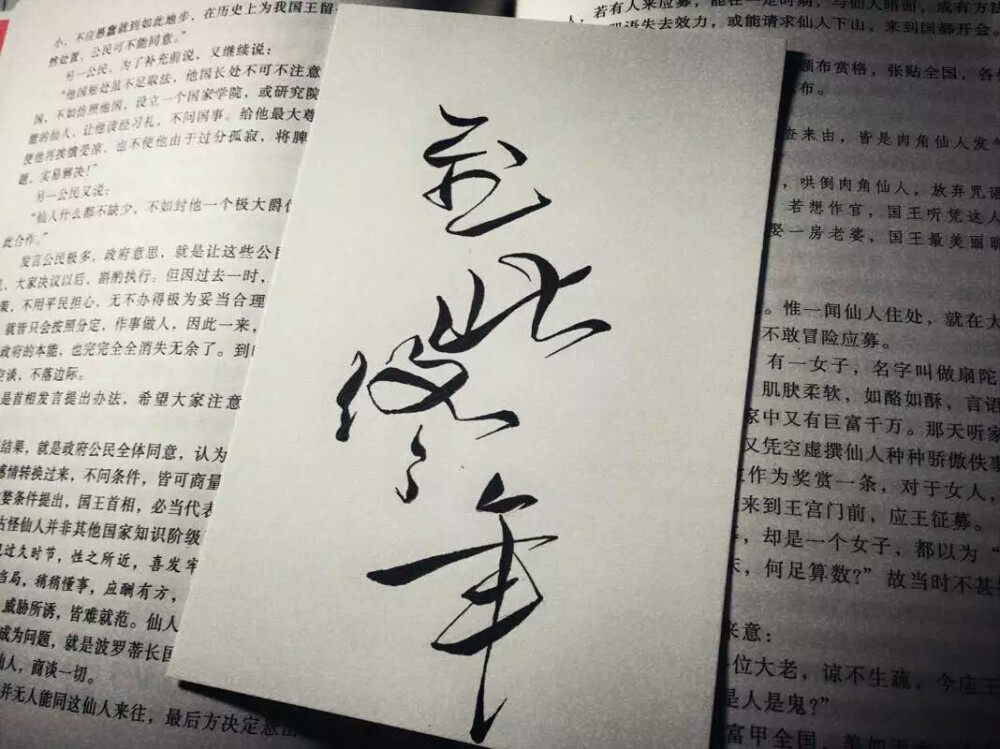 小,不应愚蠢就到如此地步,在历史上为我国王留
然处置,公民可不能同意。”
另一公民,为了补充前说,又继续说:
“他国短处虽不足取法,他国长处不可不注意
国,不如仿照他国,设立一个国家学院,或研究院
能的仙人,让他读经习礼,不问国事。给他最大尊
使他再挨饿受凉,也不使他由于过分孤寂,将脾
题,实易解决!”
另一公民又说:
“仙人什么都不缺少,不如封他一个极大爵位
此合作。”
发言公民极多,政府意思,就是让这些公民
大家决议以后,斟酌执行。但因过去一时,
策,不用平民担心,无不办得极为妥当合理
就皆只会按照分定,作事做人,因此一来,
政府的本能,也完完全全消失无余了。到
空谈,不落边际。
是首相发言提出办法,希望大家注意
结果,就是政府公民全体同意,认为
感情转换过来,不问条件,皆可商量
要条件提出,国王首相,必当代表
古怪仙人并非其他国家知识阶级
过久时节,性之所近,喜发牢
当局,稍稍懂事,应酬有方,
威胁所诱,皆难就范。仙人
成为问题,就是波罗蒂长国
仙人,商谈一切。
并无人能同这仙人来往,最后方决定悬
至此终年
若有人来应募,能在一定时期,与仙人晤面,或有方法
咒语失去效力,或能请求仙人下山,来到国都开会。
颁布赏格,张贴全国,各
布。
查来由,皆是肉角仙人发气
哄倒肉角仙人,放弃咒语
若想作官,国王听凭这人
娶一房老婆,国王最美丽
惟一闻仙人住处,就在大
不敢冒险应募。
有一女子,名字叫做扇陀
肌肤柔软,如酪如酥,言语
家中又有巨富千万。那天听家
又凭空虚撰仙人种种骄傲佚事
作为奖赏一条,对于女人,
来到王宫门前,应王征募。
却是一个女子,都以为“
何足算数?”故当时不甚
来意:
位大老,谅不生疏,今应王
是人是鬼?”
富甲全国,美如天